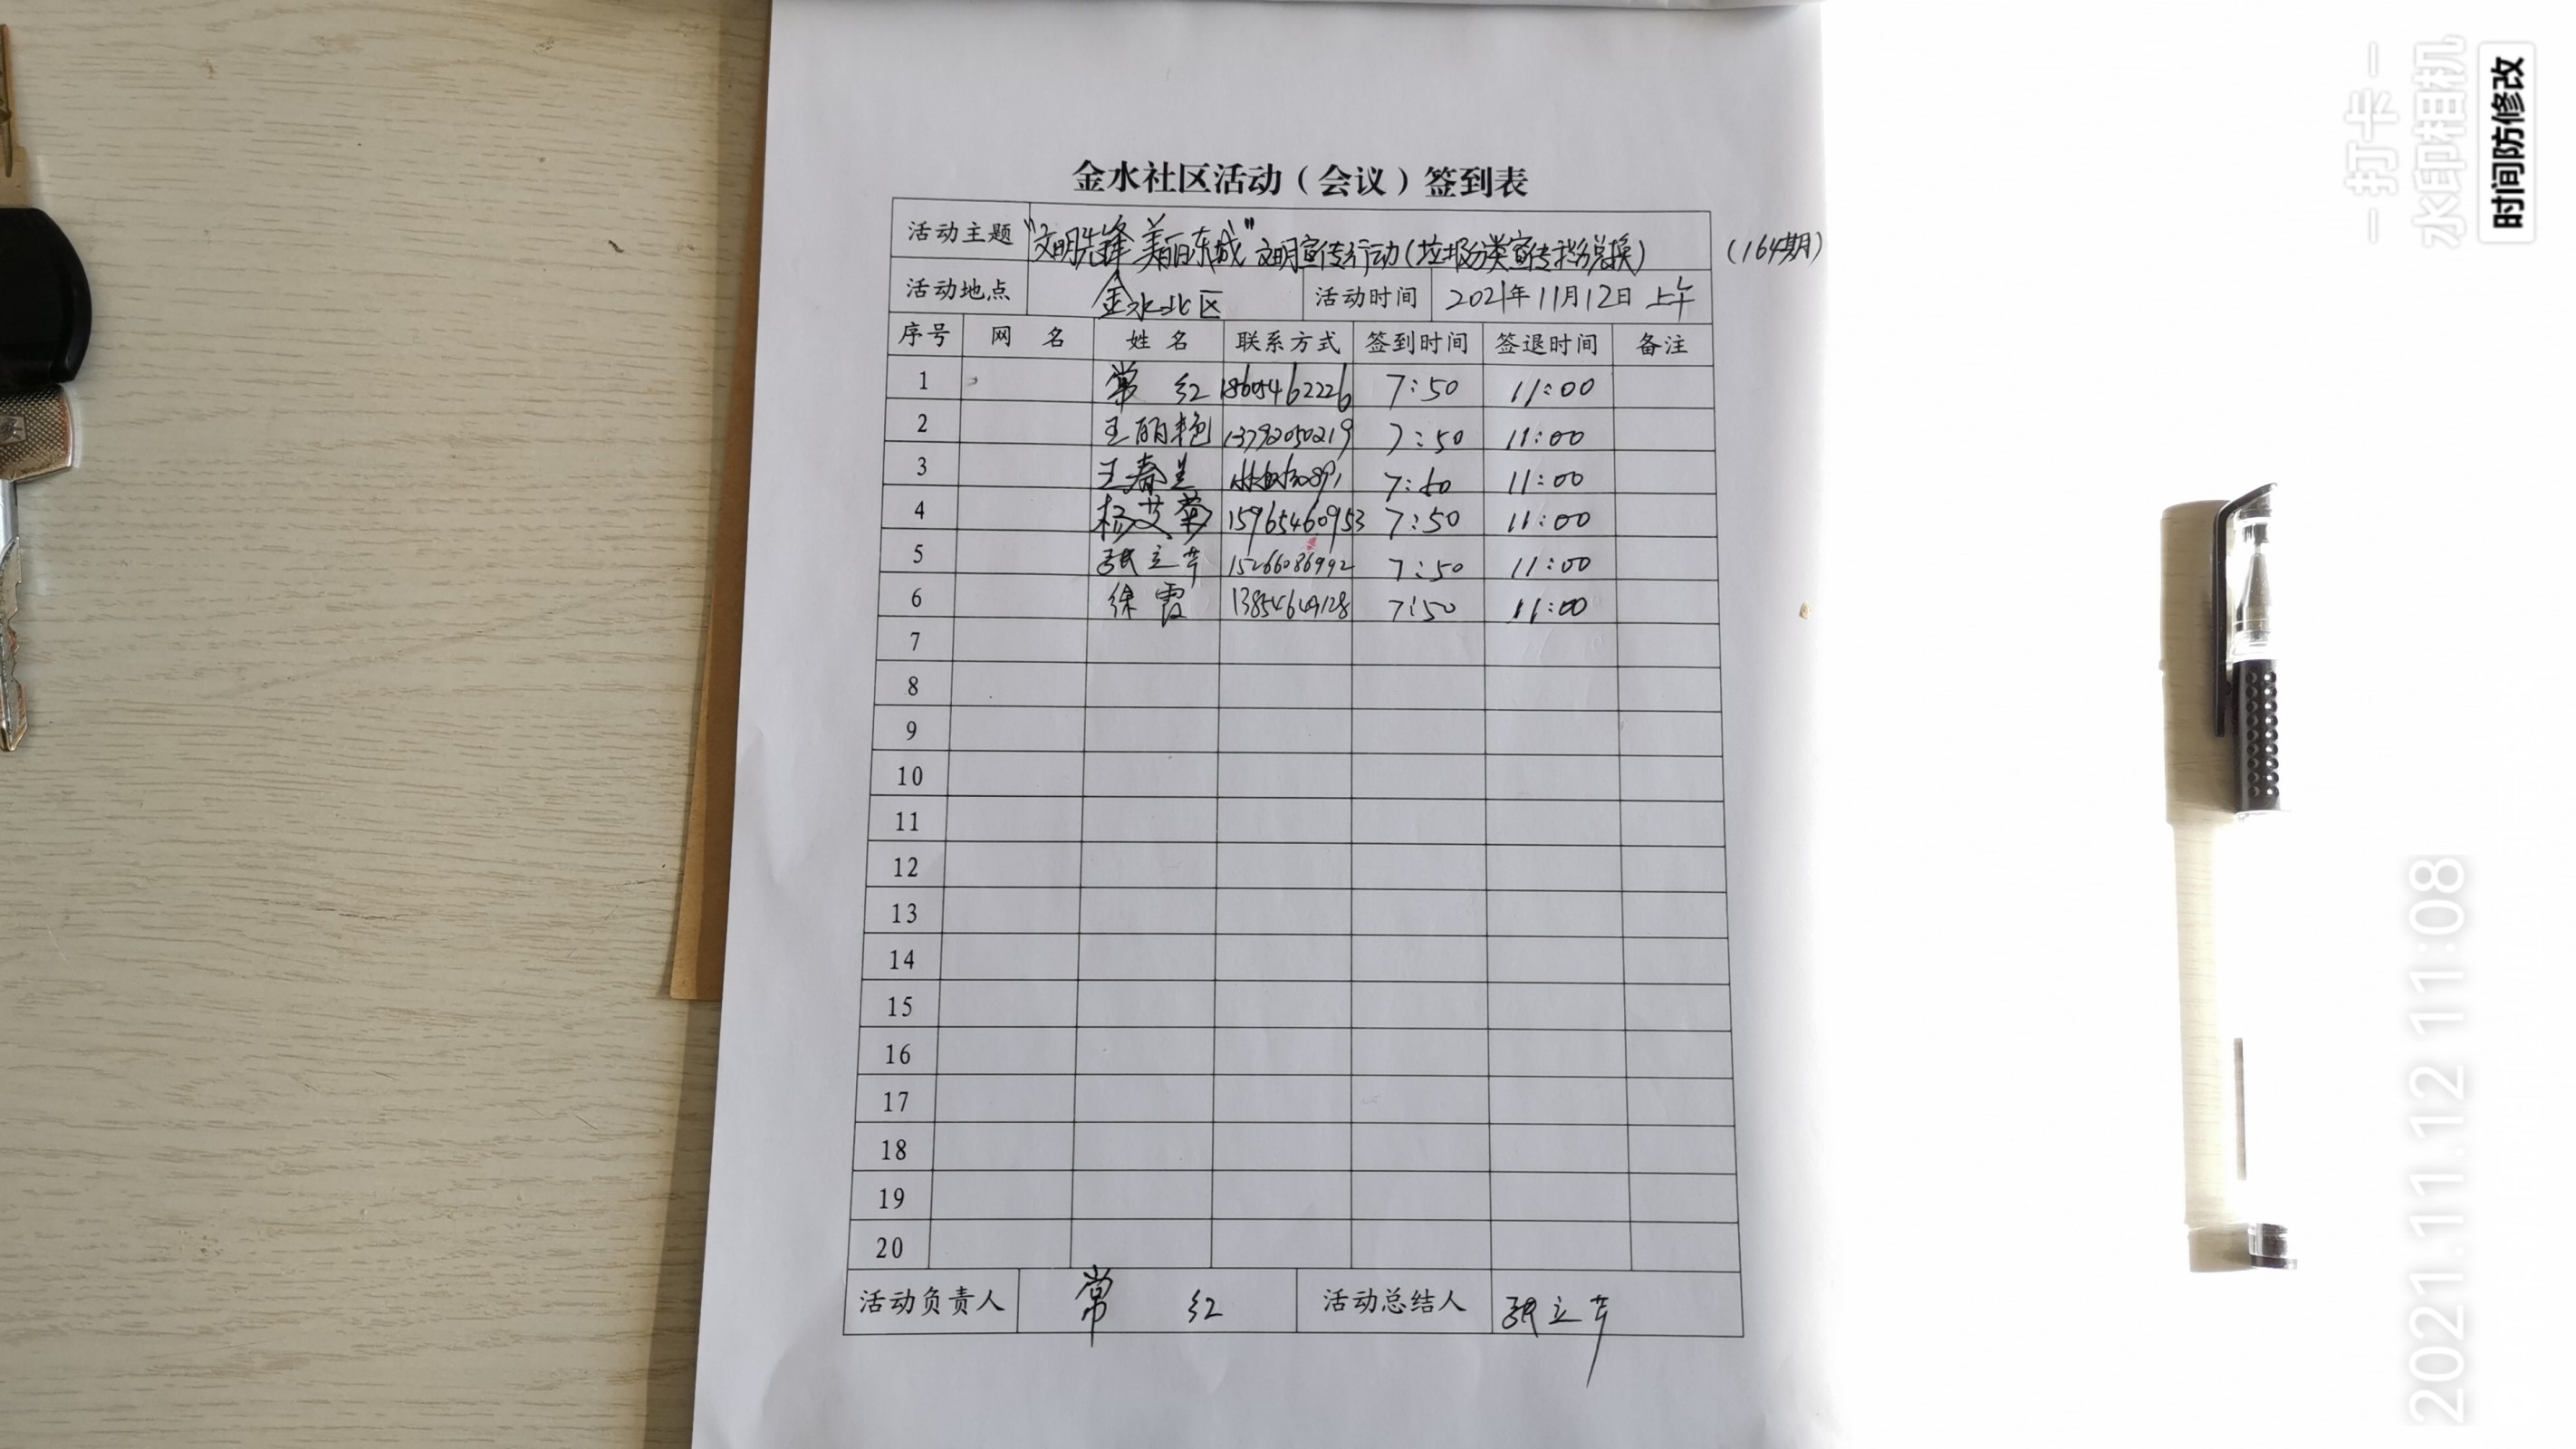 金水社区活动（会议）签到表
活动主题 “文明先锋 美丽东城”文明宣传行动(垃圾分类宣传积分兑换) (164期)
活动地点 金水北区 活动时间 2021年11月12日 上午
序号 网 名 姓 名 联系方式 签到时间 签退时间 备注
1 常 红 18605462226 7:50 11:00
2 王丽艳 13792050219 7:50 11:00
3 王春兰 7:50 11:00
4 杨艾菊 15965460953 7:50 11:00
5 张立芹 15266086992 7:50 11:00
6 徐霞 13854649128 7:50 11:00
7
8
9
10
11
12
13
14
15
16
17
18
19
20
活动负责人 常 红 活动总结人 张立芹
-打卡-
水印相机
时间防修改
2021.11.12 11:08